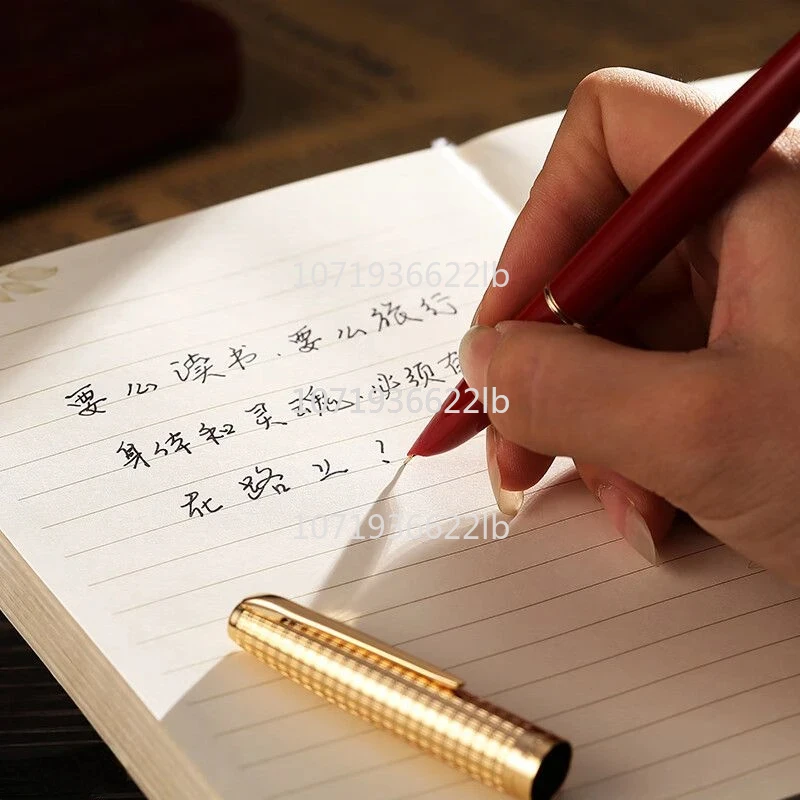 1071936622lb
要么读书.要么旅行
身体和灵魂.必须有
1071936622lb
在路上?
1071936622lb